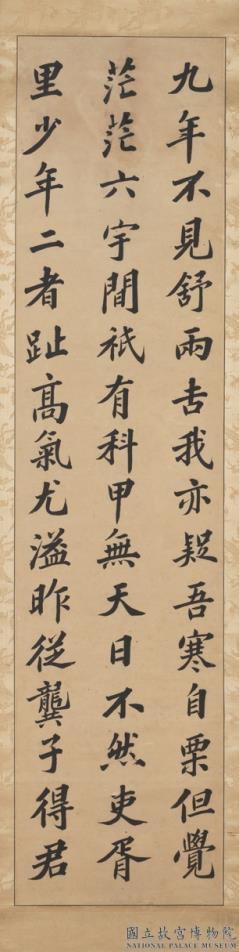 九年不見舒兩舌我亦疑吾寒自栗但覺
茫茫六宇間祇有科甲無天日不然吏胥
里少年二者趾高氣尤溢昨從龔子得君
國立故宮博物院
NATIONAL PALACE MUSEUM